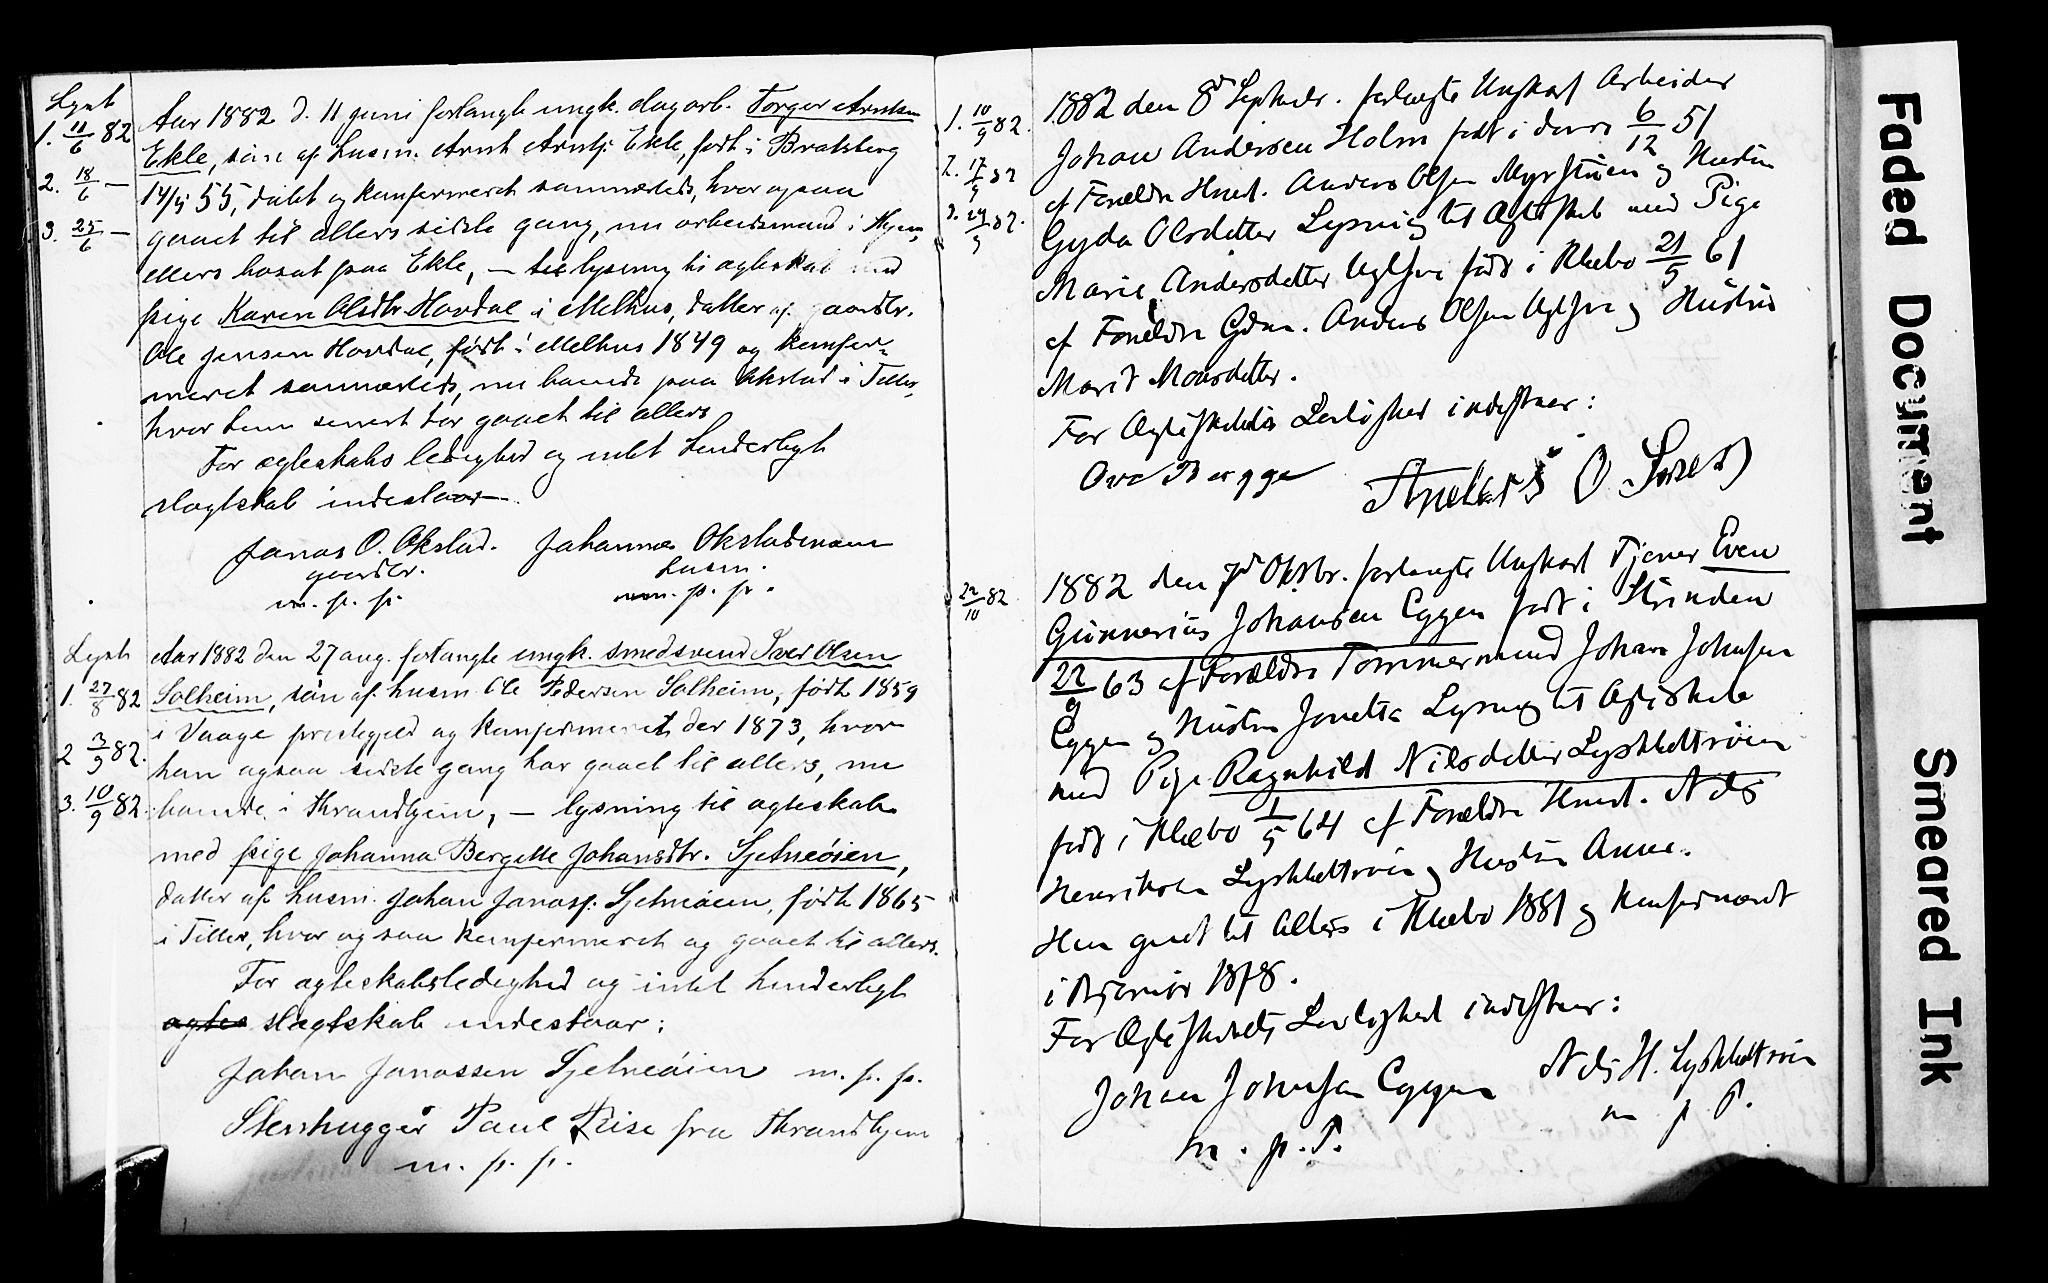 Lyst
1. 11/6 82
2. 18/6 —
3. 25/6 —
Aar 1882 d. 11 juni forlangte ungk. dagarb. Torger Arntsen
Ekle, sön af husm. Arnt Arntj. Ekle, födt i Bratsberg
14/5 55, döbt og konfirmeret sammesteds, hvor ogsaa
gaaet til alters sidste gang, nu arbeidsmand i
ellers bosat paa Ekle, — til lysning til ægteskab med
pige Karen Olsdtr. Hovdal i Melhus, datter af gaardbr.
Ole Jensen Hovdal, född i Melhus 1849 og konfir-
meret sammesteds, nu boende paa Okstad i Tiller,
hvor hun senest har gaaet til alters
For ægteskabs ledighed og intet hinderligt
slægtskab indestaar
Jonas O. Okstad. Johannes Okstadmoen
gaardbr. husm.
m. p. p. m. p. p.
Lyst
1. 27/8 82
2 3/9 82.
3. 10/9 82.
Aar 1882 den 27 aug. forlangte ungk. smedsvend Iver Olsen
Solheim, sön af husm. Ole Pedersen Solheim, född 1859
i Vaage prestegjeld og konfirmeret der 1873, hvor
han ogsaa sidste gang har gaaet til alters, nu
boende i Thrandhjem, — lysning til ægteskab
med pige Johanna Bergitte Johansdtr. Sjetneöien,
datter af husm. Johan Jonasj. Sjetneöien, född 1865
i Tiller, hvor ogsaa konfirmeret og gaaet til alters.
For ægteskabsledighed og intet hinderligt
ægtes slægtskab indestaar:
Johan Jonassen Sjetneöien m. p. p.
Stenhugger Paul Riise fra Thrandhjem
m. p. p.
1. 10/9 82.
2. 17/9 82
3. 24/9 82.
1882 den 8d Septmbr. forlangte Ungkarl Arbeider
Johan Andersen Holm född i 6/12 51
af Forældre Husm. Anders Olsen Myrstuen og Hustru
Gyda Olsdatter Lysning til Ægteskab med Pige
Marie Andersdatter Uglsne född i Klæbo 21/5 61
af Forældre Gdm. Anders Olsen Uglsne og Hustru
Marit Monsdatter.
For Ægteskabets Lovlighed indestaar:
Ove Bergge Anders O
22/10 82
1882 den 7d Oktbr. forlangte Ungkarl Tjener Even
Gunnerius Johansen Eggen född i Strinden
22/9 63 af Forældre Tømmermand Johan Johnsen
Eggen og Hustru Jonetta Lysning til Ægteskab
med Pige Ragnhild Nilsdatter Lysklettrøen
född i Klæbo 1/5 64 af Forældre Husm. Nils
Henriksen Lysklettrøen og Hustru Anne.
Hun gaaet til Alters i Klæbo 1881 og Konfirmeret
i 1878.
For Ægteskabets Lovlighed indestaar:
Johan Johnsen Eggen Nils H. Lysklettrøen
m. p. P. m p P.
Faded Document
Smeared Ink